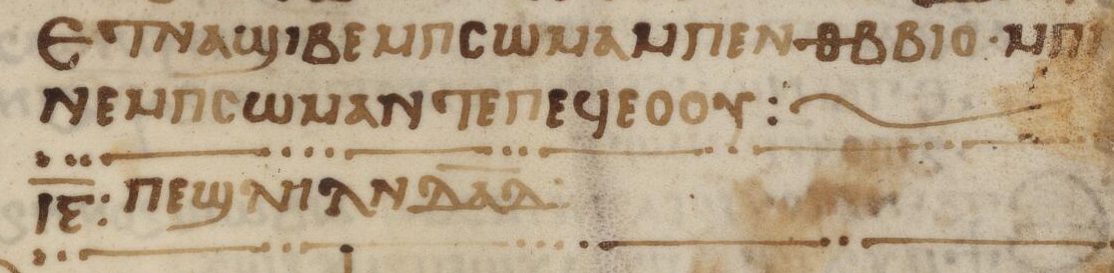 ⲈⲦⲚⲀϢⲒⲂⲈⲘⲠⲤⲰⲘⲀⲘⲠⲈⲚⲐⲂⲂⲒⲞ·ⲘⲠⲒ
ⲚⲈⲘⲠⲤⲰⲘⲀⲚⲦⲈⲠⲈϤⲈⲞⲞⲨ:
ⲒⲈ̅: ⲠⲈϢⲖⲎⲖⲚⲆⲀ̅Ⲇ̅: